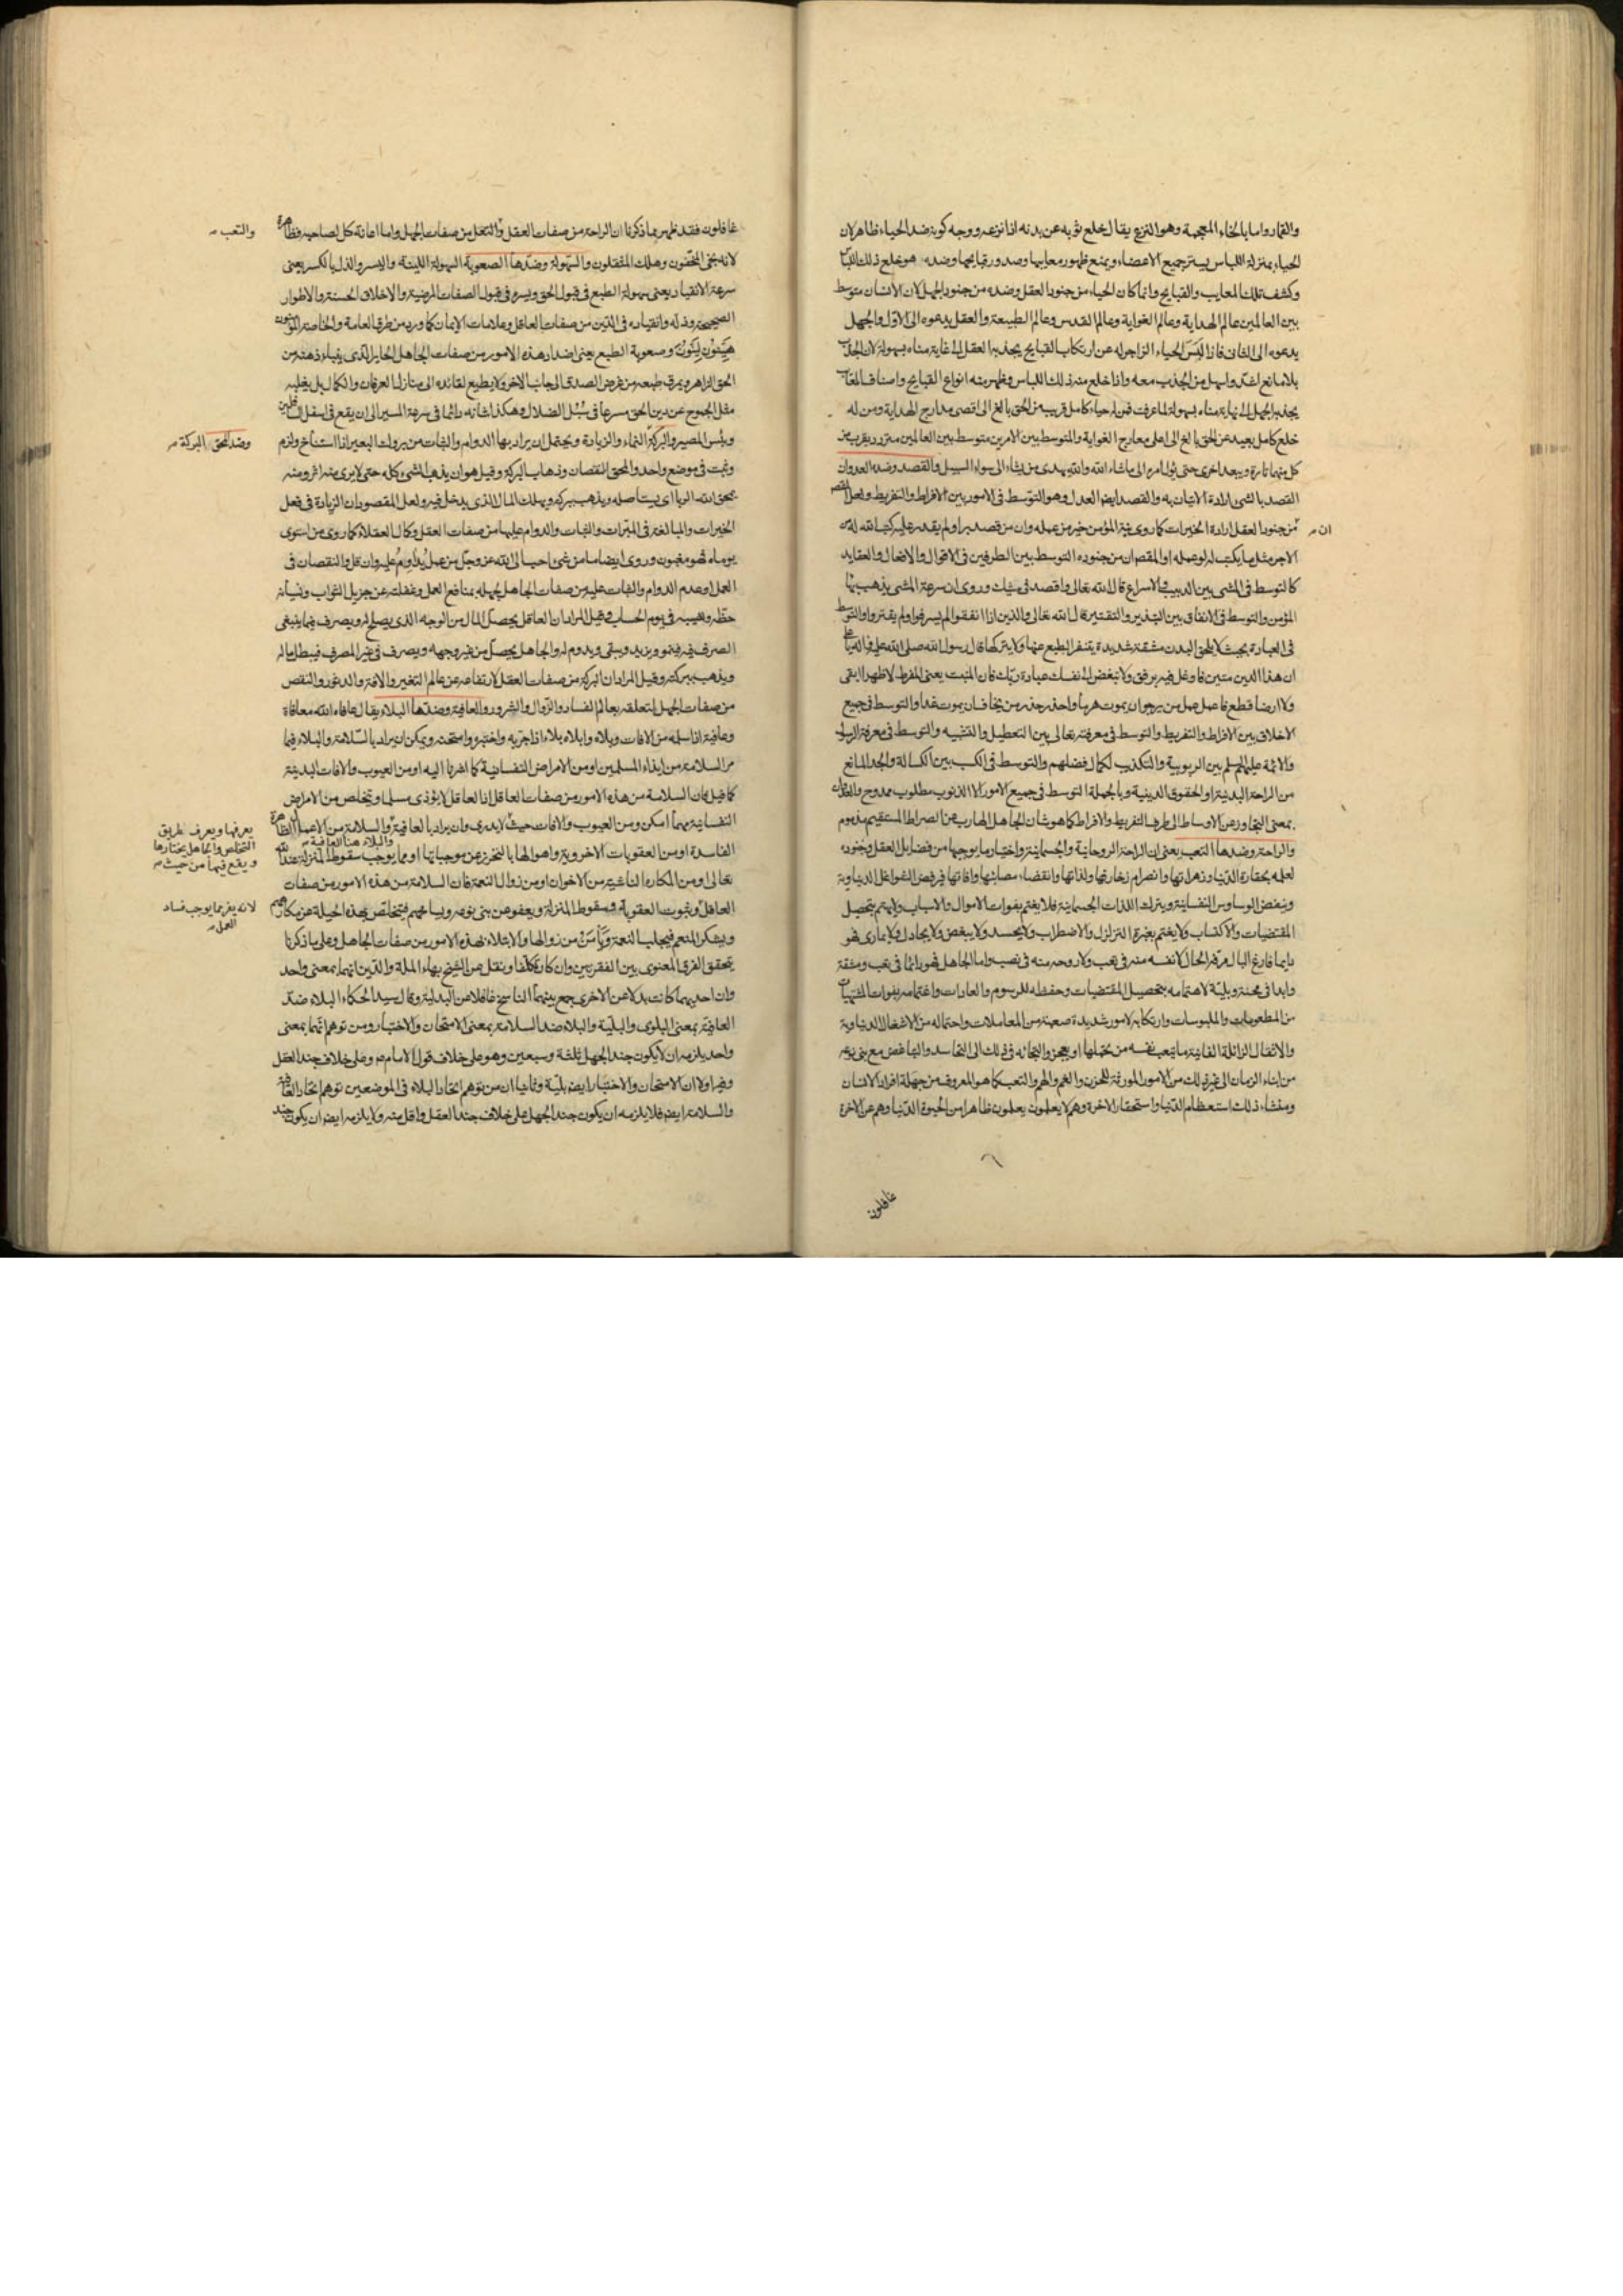 والقمار واما بالخاء المعجمة وهو النزع يقال خلع ثوبه عن بدنه اذا نزعه ووجه كونه ضد الحياء ظاهر لان
الحياء بمنزلة اللباس يستر جميع الاعضاء ويمنع ظهور معايبها وصدور قبايحها وضده هو خلع ذلك اللباس
وكشف تلك المعايب والقبايح وانما كان الحياء من جنود العقل وضده من جنود الجهل لان الانسان متوسط
بين العالمين عالم الهداية وعالم الغواية وعالم القدس وعالم الطبيعة والعقل يدعوه الى الاول والجهل
يدعوه الى الثانى فاذا لبس الحياء الزاجر له عن ارتكاب القبايح يجذبه العقل الى غاية مناه بسهولة لان الجذب
بلا مانع اشد واسهل من الجذب معه واذا خلع منه ذلك اللباس وظهر منه انواع القبايح واصناف المعايب
يجذبه الجهل الى نهاية مناه بسهولة لما عرفت فمن له حياء كامل قريب من الحق بالغ الى اقصى مدارج الهداية ومن له
خلع كامل بعيد عن الحق بالغ الى اعلى معارج الغواية والمتوسط بين الامرين متوسط بين العالمين متردد يقرب من
كل منهما تارة ويبعد اخرى حتى يؤل امره الى ما شاء الله والله يهدى من يشاء الى سواء السبيل والقصد وضده العدوان
القصد بالشى ارادة الاتيان به والقصد ايضا العدل وهو التوسط فى الامور بين الافراط والتفريط ولعل المقصود
ان
من جنود العقل ارادة الخيرات كما روى نية المؤمن خير من عمله وان من قصد برا ولم يقدر عليه كتب الله له من
الاجر مثل ما يكتب له لو عمله او المقص ان من جنوده التوسط بين الطرفين فى الاقوال والافعال والعقايد
كالتوسط فى المشى بين الدبيب والاسراع قال الله تعالى واقصد فى مشيك وروى ان سرعة المشى يذهب ببهاء
المؤمن والتوسط فى الانفاق بين التبذير والتقتير قال الله تعالى والذين اذا انفقوا لم يسرفوا ولم يقتروا والتوسط
فى العبادة بحيث لا يلحق البدن مشقة شديدة يتنفر الطبع عنها ولا يتركها قال رسول الله صلى الله عليه وآله يا على
ان هذا الدين متين فاوغل فيه برفق ولا تبغض الى نفسك عبادة ربك فان المنبت يعنى المفرط لا ظهرا ابقى
ولا ارضا قطع فاعمل عمل من يرجو ان يموت هرما واحذر حذر من يتخاف ان يموت غدا والتوسط فى جميع
الاخلاق بين الافراط والتفريط والتوسط فى معرفته تعالى بين التعطيل والتشبيه والتوسط فى معرفة الرسول
والائمة عليهم السلم بين الربوبية والتكذيب لكمال فضلهم والتوسط فى الكسب بين الكسالة والجد المانع
من الراحة البدنية او الحقوق الدينية وبالجملة التوسط فى جميع الامور الا الذنوب مطلوب ممدوح والعدوان
بمعنى التجاوز عن الاوساط الى طرف التفريط والافراط كما هو شان الجاهل الهارب عن الصراط المستقيم مذموم
والراحة وضدها التعب يعنى ان الراحة الروحانية والجسمانية واختيار ما يوجبها من فضايل العقل وجنوده
لعلمه بحقارة الدنيا وزهراتها وانصرام زخارفها ولذاتها وانقضاء مصائبها وافاتها فيرفض الشواغل الدنياوية
وينفض الوساوس النفسانية ويترك اللذات الجسمانية فلا يغتم بفوات الاموال والاسباب ولا يهتم بتحصيل
المقتضيات والاكتساب ولا يغتم بغبرة التزلزل والاضطراب ولا يحسد ولا يبغض ولا يجادل ولا يمارى فهو
دايما فارغ البال مرفه الحال لا نفسه منه فى تعب ولا روحه منه فى نصب واما الجاهل فهو دائما فى تعب ومشقة
وابدا فى محنة وبلية لاهتمامه بتحصيل المقتضيات وحفظه للرسوم والعادات واغتمامه بفوات المشتهيات
من المطعومات والملبوسات وارتكابه لامور شديدة صعبة من المعاملات واحتماله من الاشغال الدنياوية
والاثقال الزائلة الفانية ما يتعب نفسه من تحملها او يعجز والتجائه فى ذلك الى التحاسد والتباغض مع بنى نوعه
من ابناء الزمان الى غير ذلك من الامور المورثة للحزن والغم والهم والتعب كما هو المعروف من جهلة افراد الانسان
ومنشاء ذلك استعظام الدنيا واستحقار الاخرة وهم لا يعلمون يعلمون ظاهرا من الحيوة الدنيا وهم عن الاخرة
غافلون
غافلون فقد ظهر بما ذكرنا ان الراحة من صفات العقل والتعب من صفات الجهل واما اعانة كل لصاحبه فظاهرة
والتعب
لانه نجى المخفون وهلك المثقلون والسهولة وضدها الصعوبة السهولة اللينة واليسر والذل بالكسر يعنى
سرعة الانقياد يعنى سهولة الطبع فى قبول الحق ويسره فى قبول الصفات المرضية والاخلاق الحسنة والاطوار
الصحيحة وذله وانقياده فى الدين من صفات العاقل وعلامات الايمان كما ورد من طرق العامة والخاصة المؤمنون
هينون لينون وصعوبة الطبع يعنى اضداد هذه الامور من صفات الجاهل الحاير الذى يتباء ذهنه من
الحق الزاهر ويمرق طبعه من غرض الصدق الى جانب الاخر ولا يطيع لقائده الى منازل العرفان والكمال بل يغلبه
مثل الجموح عن دين الحق مسرعا فى سبل الضلال وهكذا شانه دائما فى سرعة المسير الى ان يقع فى اسفل السافلين
وبئس المصير والبركة النماء والزيادة ويحتمل ان يراد بها الدوام والثبات من بروك البعير اذا استناخ ولزم
وضد المحق البركة
وثبت فى موضع واحد والمحق النقصان وذهاب البركة وقيل هو ان يذهب الشىء كله حتى لا يرى منه اثر ومنه
يمحق الله الربا اى يستاصله ويذهب ببركته ويهلك المال الذى يدخل فيه ولعل المقصود ان الزيادة فى فعل
الخيرات والمبالغة فى المبرات والثبات والدوام عليها من صفات العقل وكمال العقلاء كما روى من استوى
يوماه فهو مغبون وروى ايضا ما من شىء احب الى الله عز وجل من عمل يداوم عليه وان قل والنقصان فى
العمل وعدم الدوام والثبات عليه من صفات الجاهل لجهله بمنافع العمل وغفلته عن جزيل الثواب ونسيانه
حظه ونصيبه فى يوم الحساب وقيل المراد ان العاقل يحصل المال من الوجه الذى يصلح له ويصرف فيما ينبغى
الصرف فيه فينمو ويزيد ويبقى ويدوم له والجاهل يحصل من غير وجهه ويصرف فى غير المصرف فيبطل ماله
ويذهب ببركته وقيل المراد ان البركة من صفات العقل لارتفاعه عن عالم التغير والافة والدثور والنقص
من صفات الجهل لتعلقه بعالم الفساد والزوال والشرور والعافية وضدها البلاء يقال عافاه الله معافاة
وعافية اذا سلمه من الافات وبلاه وابلاه بلاء اذا جربه واختبره وامتحنه ويمكن ان يراد بالسلامة والبلاء فيما
مر السلامة من ايذاء المسلمين او من الامراض النفسانية كما اشرنا اليه او من العيوب والافات البدنية
كما قيل فان السلامة من هذه الامور من صفات العاقل اذ العاقل لا يؤذى مسلما ويتخلص من الامراض
النفسانية مهما امكن ومن العيوب والافات حيث لا يدرى وان يراد بالعافية والسلامة من الاعمال الظاهرة
يعرفها ويعرف طريق
التخلص والجاهل يختارها
ويقع فيها من حيث
والبلاء هنا العافية
الفاسدة او من العقوبات الاخروية واهوالها بالتحرز عن موجباتها او مما يوجب سقوط المنزلة عند الله
تعالى او من المكاره الناشية من الاخوان او من زوال النعمة فان السلامة من هذه الامور من صفات
العاقل وثبوت العقوبة وسقوط المنزلة ويعفو عن بنى نوعه ويسامحهم فيتخلص بهذه الحيلة عن مكارههم
لانه يفر مما يوجب فساد
العمل
ويشكر المنعم فيجلب النعمة ويامن من زوالها والابتلاء بهذه الامور من صفات الجاهل وعلى ما ذكرنا
يتحقق الفرق المعنوى بين الفقرتين وان كان تكلفا ونقل عن الشيخ بهاء الملة والدين انهما بمعنى واحد
وان احديهما كانت بدلا عن الاخرى جمع بينهما الناسخ غافلا عن البدلية وقال سيد الحكماء البلاء ضد
العافية بمعنى البلوى والبلية والبلاء ضد السلامة بمعنى الامتحان والاختبار ومن توهم انهما بمعنى
واحد يلزمه ان لا يكون جند الجهل ثلثة وسبعين وهو على خلاف قول الامام ع وعلى خلاف جند العقل
وفيه اولا ان الامتحان والاختبار ايضا بلية وثانيا ان من توهم اتحاد البلاء فى الموضعين توهم اتحاد العافية
والسلامة ايضا فلا يلزمه ان يكون جند الجهل على خلاف جند العقل واقل منه ولا يلزمه ايضا ان يكون جند